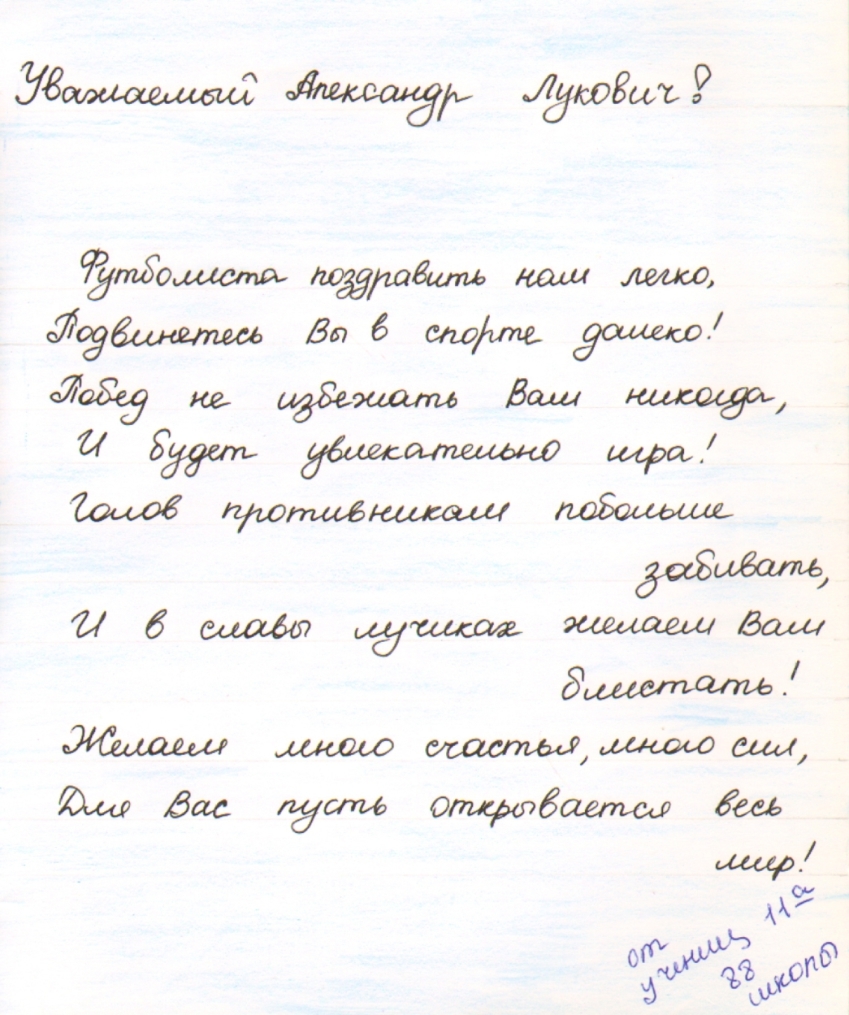 Уважаемый Александр Лукович!
Футболиста поздравить нам легко,
Подвинетесь Вы в спорте далеко!
Побед не избежать Вам никогда,
И будет увлекательно игра!
Голов противникам побольше
забивать,
И в славы лучиках желаем Вам
блистать!
Желаем много счастья, много сил,
Для Вас пусть открывается весь
мир!
от
учениц 11а
88
школы